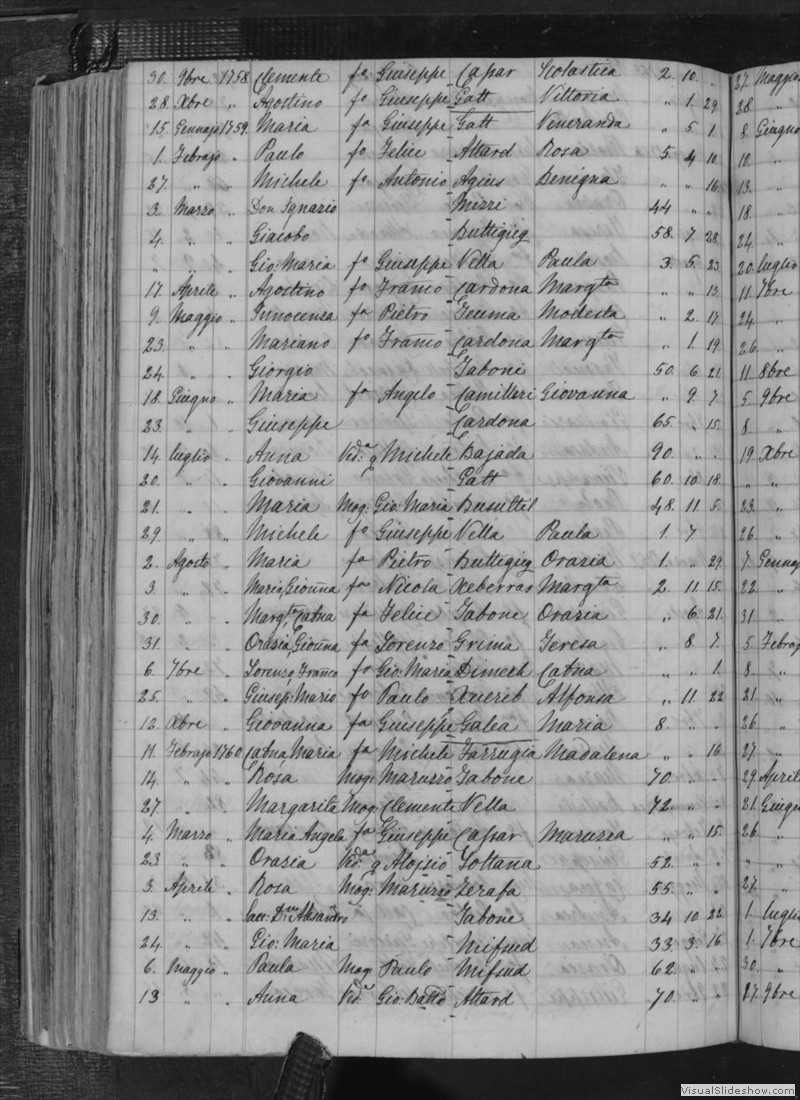 30. 9bre 1758. Clemente fo Giuseppe Caſsar Scolastica 2. 10. „ 27. Maggio
28. Xbre „ Agostino fo Giuseppe Gatt Vittoria „ 1. 29. 28. „
15. Gennajo 1759. Maria fa Giuseppe Gatt Veneranda „ 5. 1. 8. Giugno
1. Febrajo „ Paulo fo Felice Attard Rosa 5. 4. 10. 12. „
27. „ „ Michele fo Antonio Agius Benigna „ „ 16. 13. „
3. Marzo „ Don Ignazio Mizzi 44. „ „ 18. „
4. „ „ Giacobo Buttigieg 58. 7. 28. 24. „
„ „ „ Gio: Maria fo Giuseppe Vella Paula 3. 5. 23. 20. Luglio
17. Aprile „ Agostino fo Franco Cardona Margta „ „ 13. 11. 7bre
9. Maggio „ Innocenza fa Pietro Teuma Modesta „ 2. 17. 24. „
23. „ „ Mariano fo Franco Cardona Margta „ 1. 19. 26. „
24. „ „ Giorgio Taboni 50. 6. 21. 11. 8bre
18. Giugno „ Maria fa Angelo Camilleri Giovanna „ 9. 7. 5. 9bre
23. „ „ Giuseppe Cardona 65. „ 15. 8. „
14. Luglio „ Anna Veda q Michele Bajada 90. „ „ 19. Xbre
20. „ „ Giovanni Gatt 60. 10. 18. „ „
21. „ „ Maria Mog: Gio: Maria Busuttil 48. 11. 5. 23. „
29. „ „ Michele fo Giuseppe Vella Paula 1. 7. 26. „
2. Agosto „ Maria fa Pietro Buttigieg Orazia 1. „ 29. 7. Gennajo
3. „ „ Maria, Giovna fa Nicola Xeberras Margta 2. 11. 15. 22. „
30. „ „ Margta, Catna fa Felice Tabone Orazia „ 6. 21. 31. „
31. „ „ Orazia, Giovna fa Lorenzo Grima Teresa „ 8. 7. 5. Febrajo
6. 7bre „ Lorenzo, Franco fo Gio: Maria Dimech Catna „ „ 1. 8. „
25. „ „ Giusep: Mario fo Paulo Xuereb Alfonsa „ 11. 22. 21. „
12. Xbre „ Giovanna fa Giuseppe Galea Maria 8. „ „ 26. „
11. Febrajo 1760. Catna Maria fa Michele Farrugia Madalena „ „ 16. 27. „
14. „ „ Rosa Mog: Maruzzo Tabone 70. „ „ 29. Aprile
27. „ „ Margarita Mog: Clemente Vella 72. „ „ 21. Giugno
4. Marzo „ Maria Angela fa Giuseppe Caſsar Maruzza „ „ 15. 26. „
23. „ „ Orazia Veda q Aloisio Soltana 52. „ „ „ „
3. Aprile „ Rosa Mog: Maruzzo Zerafa 55. „ „ 27. „
13. „ „ Sac: Dn Alesandro Tabone 34. 10. 22. 1. Luglio
24. „ „ Gio: Maria Mifsud 33. 3. 16. 1. 7bre
6. Maggio „ Paula Mog: Paulo Mifsud 62. „ „ 30. „
13. „ „ Anna Veda Gio: Batta Attard 70. „ „ 27. 9bre
VisualSlideshow.com